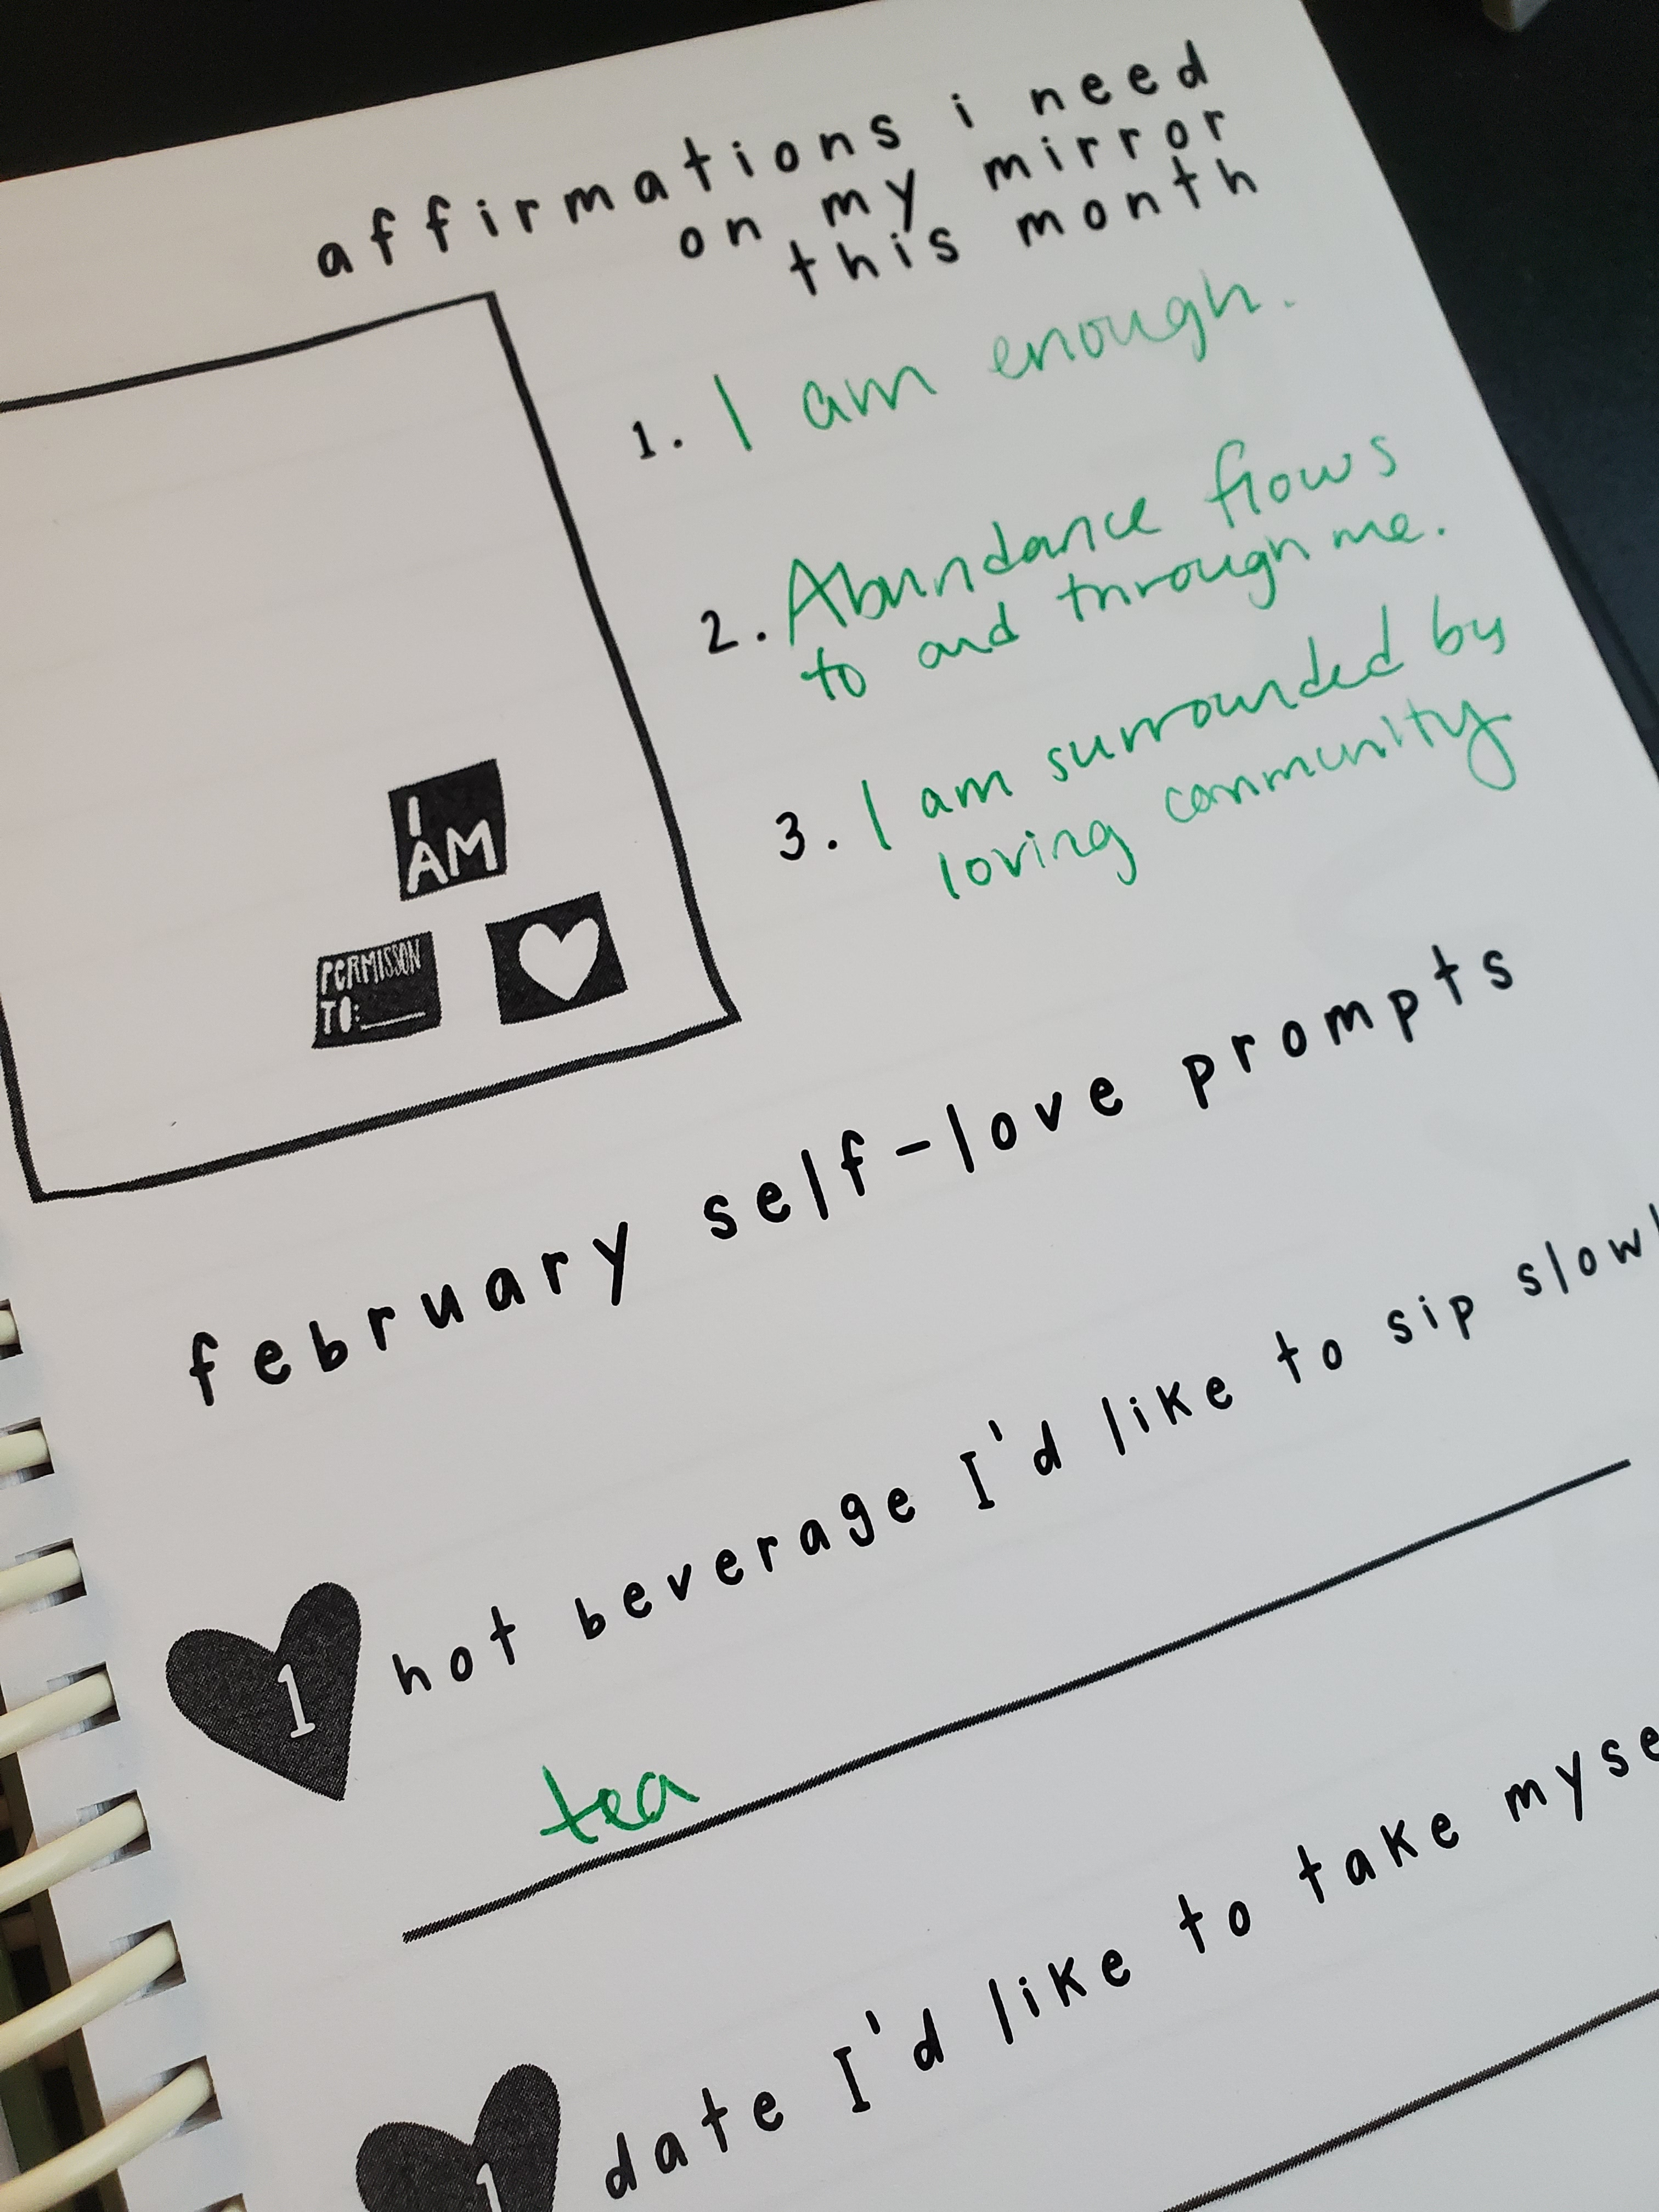 affirmations i need
on my mirror
this month
1. I am enough.
2. Abundance flows
to and through me.
3. I am surrounded by
loving community
I
AM
PERMISSON
TO:
february self-love prompts
1 hot beverage I'd like to sip slowl
tea
1 date I'd like to take myse